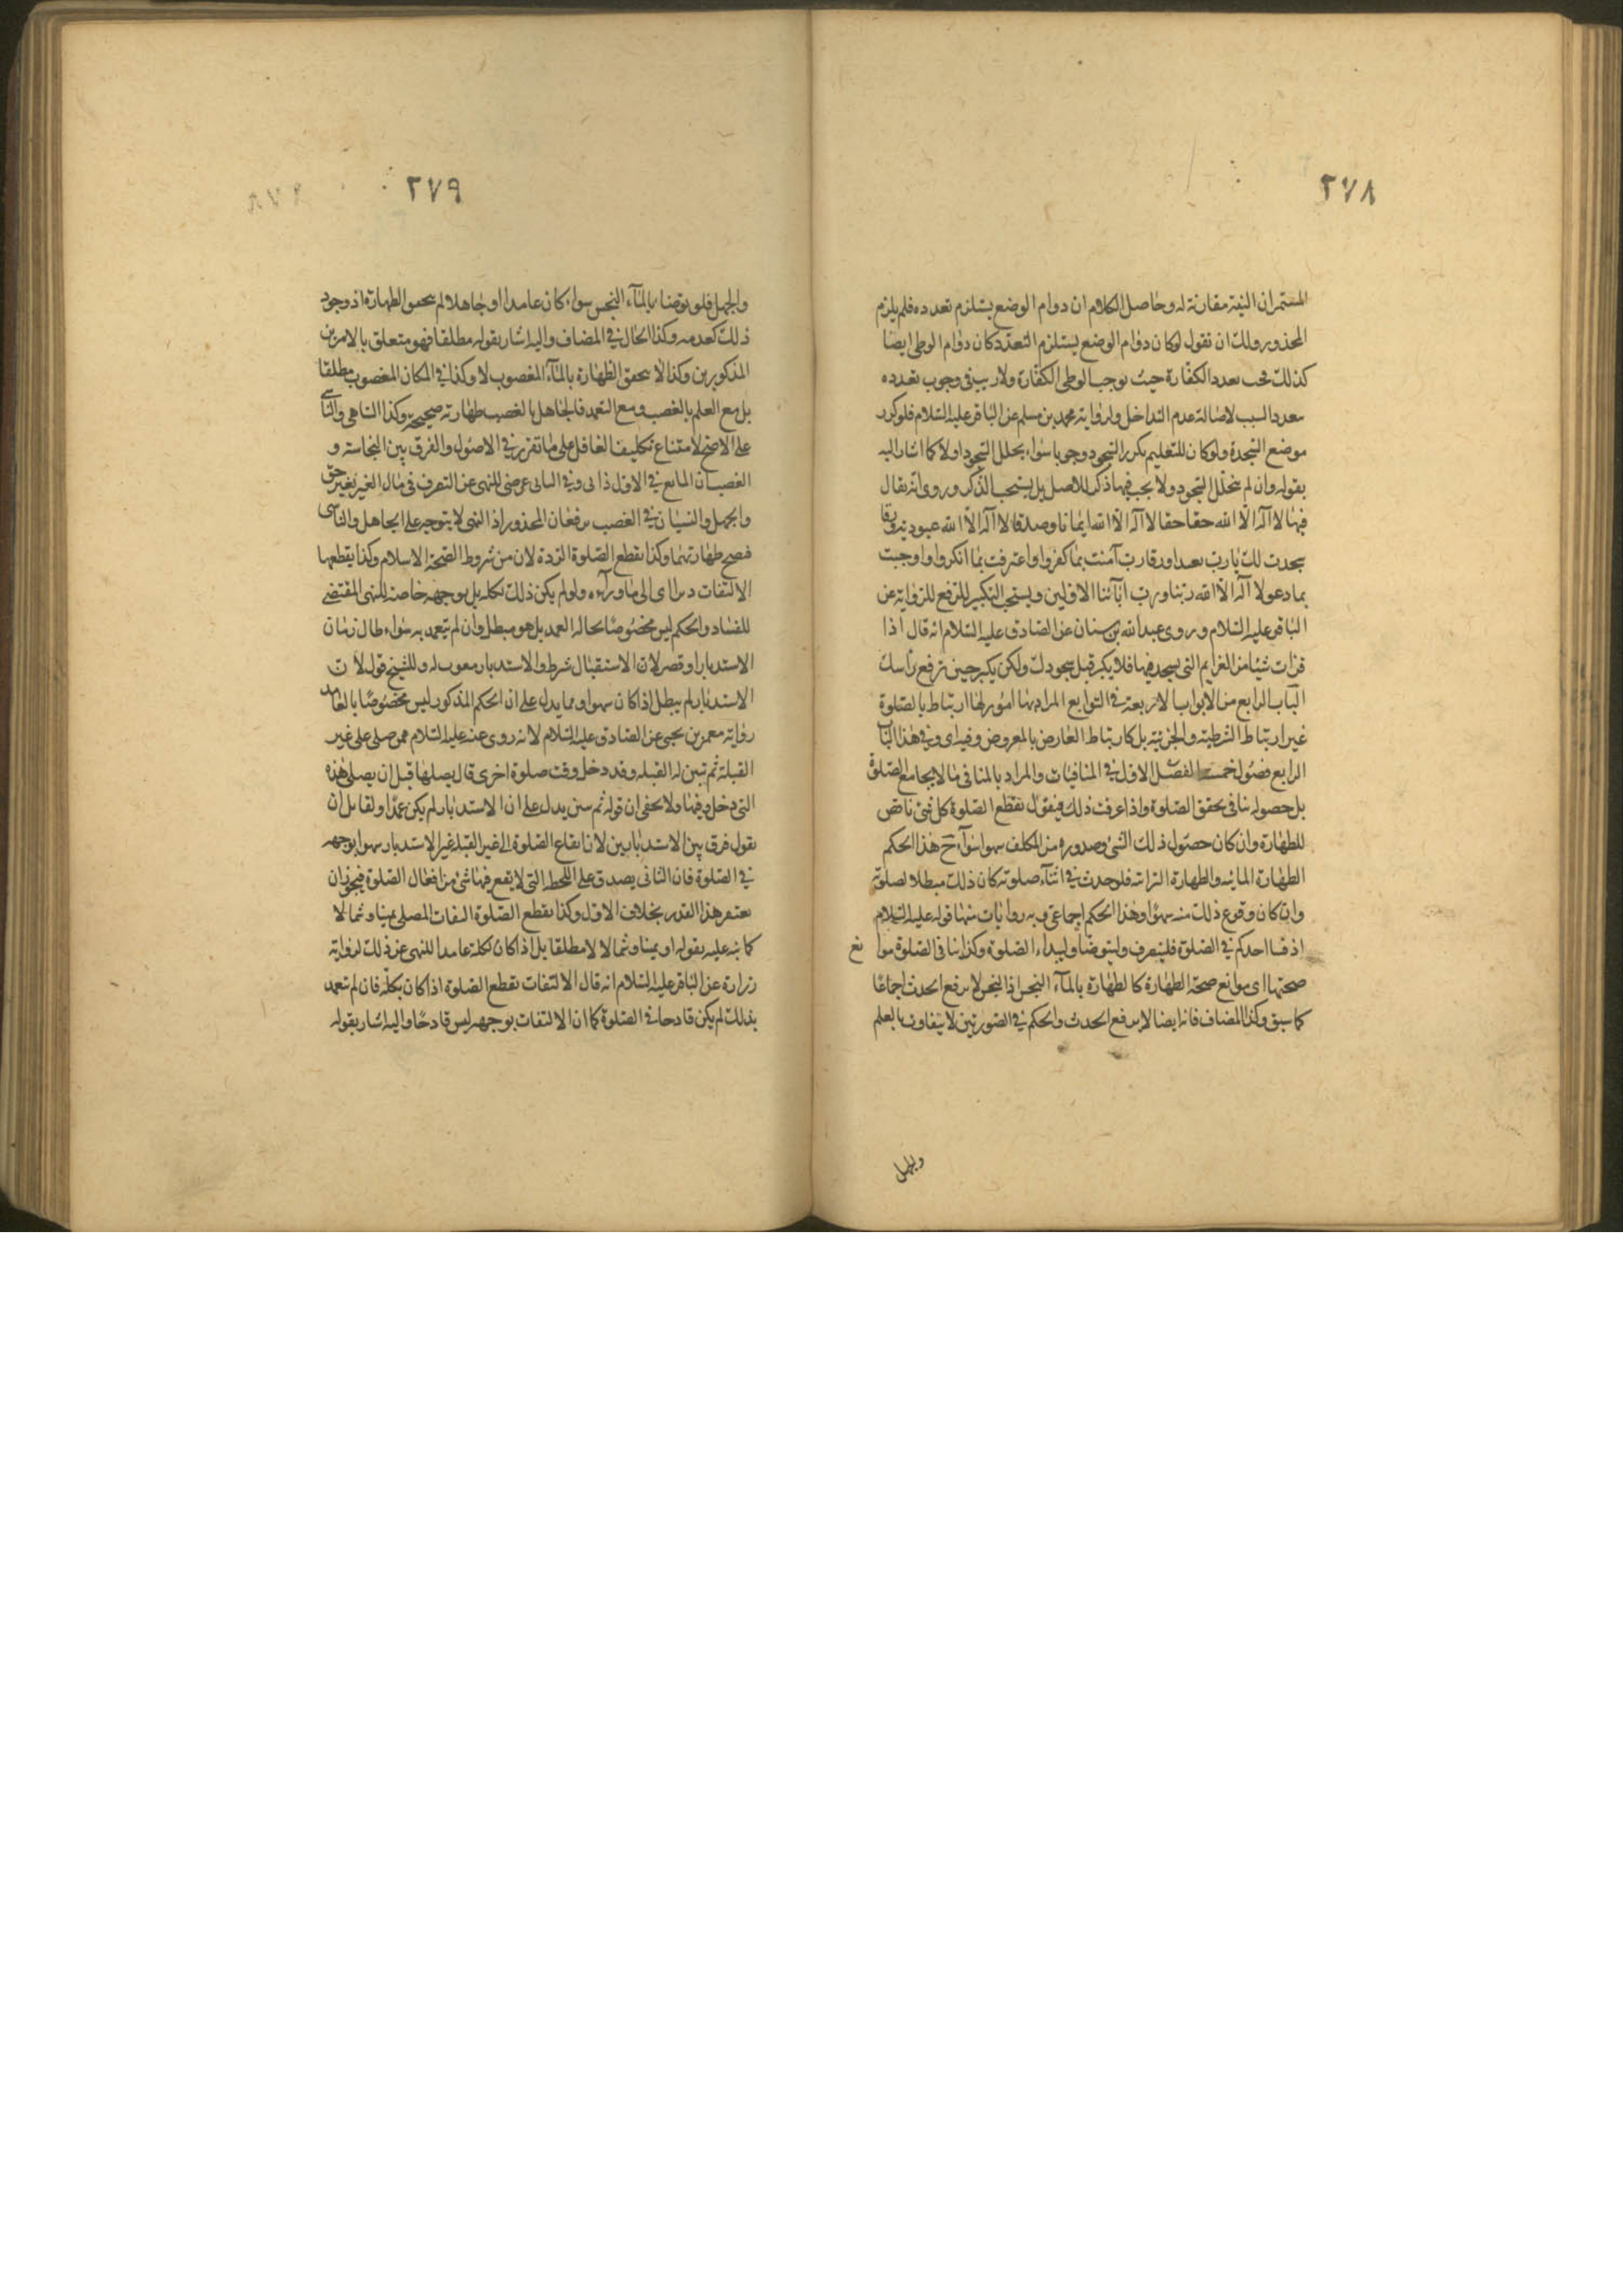 ٢٧٨
المستمر ان النية مقارنة له وحاصل الكلام ان دوام الوضع يستلزم تعدده فلم يلزم
المحذور ولك ان تقول لوكان دوام الوضع يستلزم التعدد كان دوام الوطى ايضا
كذلك تعدد الكفارة حيث يوجب الوطى الكفارة ولا ريب فى وجوب تعدده
تعدد السبب لاصالة عدم التداخل ولرواية محمد بن مسلم عن الباقر عليه السلام فلو كرر
موضع السجدة ولو كان للتعليم تكرر السجود وجوبا سواء تخلل السجود اولا كما اشار اليه
بقوله وان لم يتخلل السجود ولا يجب فيها ذكر للاصل بل يستحب الذكر وروى انه يقال
فيها لا اله الا الله حقا حقا لا اله الا الله ايمانا وصدقا لا اله الا الله عبودية ورقا
سجدت لك يارب تعبدا ورقا رب آمنت بما كفروا واعترفت بما انكروا واوجبت
بما دعو لا اله الا الله ربنا ورب ابائنا الاولين ويستحب التكبير للرفع للرواية عن
الباقر عليه السلام وروى عبدالله بن سنان عن الصادق عليه السلام انه قال اذا
قرات شيئا من العزايم التى يسجد فيها فلا يكبر قبل سجودك ولكن يكبر حين ترفع راسك
الباب الرابع من الابواب الاربعة فى التوابع المراد بها امور لها ارتباط بالصلوة
غير ارتباط الشرطية والجزئية بل كارتباط العارض بالمعروض وفيه اى وفى هذا الباب
الرابع فصول خمسة الفصل الاول فى المنافيات والمراد بالمنافى ما لا يجامع الصلوة
بل حصوله ينافى تحقق الصلوة واذا عرفت ذلك فيقول يقطع الصلوة كل شئ ناقض
للطهارة وان كان حصول ذلك الشئ وصدوره من المكلف سهوا سواء ح هذا الحكم
الطهارة المائية والطهارة الترابية فلو حدث فى اثناء صلوته كان ذلك مبطلا لصلوته
وان كان وقوع ذلك منه سهوا وهذا الحكم اجماعى وبه روايات منها قوله عليه السلام
اذ فسا احدكم فى الصلوة فلينصرف وليتوضا وليبداء الصلوة وكذا ينافى الصلوة موا نع
صحتها اى موانع صحة الطهارة كالطهارة بالماء النجس اذ النجس لا يرفع الحدث اجماعا
كما سبق وكذا المضاف فانه ايضا لا يرفع الحدث والحكم فى الصورتين لا يتفاوت بالعلم
والجهل
٢٧٩
والجهل فلو توضا بالماء النجس سواء كان عامدا او جاهلا لم يتحقق الطهارة اذ وجود
ذلك كعدمه وكذا الحال فى المضاف واليه اشار بقوله مطلقا فهو متعلق بالامرين
المذكورين وكذا لا يتحقق الطهارة بالماء المغصوب لا وكذا فى المكان المغصوب مطلقا
بل مع العلم بالغصب ومع التعمد فالجاهل بالغصب طهارته صحيحة وكذا الساهى والناسى
على الاصح لامتناع تكليف الغافل على ما تقرر فى الاصول والفرق بين النجاسة و
الغصب ان المانع فى الاول ذاتى وفى الثانى عرضى للنهى عن التصرف فى مال الغير بغير حق
والجهل والنسيان فى الغصب يرفعان المحذور اذ النهى لا يتوجه على الجاهل والناسى
فصح طهارتهما وكذا يقطع الصلوة الردة لان من شروط الصحة الاسلام وكذا يقطعها
الالتفات دبرا اى الى ما وراءه ولو لم يكن ذلك بكله بل بوجهه خاصة للنهى المقتضى
للفساد والحكم ليس مخصوصا بحالة العمد بل هو مبطل وان لم يتعمد به سواء طال زمان
الاستدبار او قصر لان الاستقبال شرط والاستدبار مفوت له وللشيخ قول لان
الاستدبار لم يبطل اذا كان سهوا ومما يدل على ان الحكم المذكور ليس مخصوصا بالعامد
رواية معمر بن يحيى عن الصادق عليه السلام لانه روى عنه عليه السلام ممن صلى على غير
القبلة ثم تبين له القبلة وقد دخل وقت صلوة اخرى قال يصليها قبل ان يصلى هذه
التى دخل وقتها ولا يخفى ان قوله ثم تبين يدل على ان الاستدبار لم يكن عمدا ولقائل ان
يقول فرق بين الاستدبارين لان ايقاع الصلوة الى غير القبلة غير الاستدبار سهوا بوجهه
فى الصلوة فان الثانى يصدق على اللحظة التى لا يقع فيها شئ من افعال الصلوة فيجوز ان
يغتفر هذا القدر بخلاف الاول وكذا يقطع الصلوة التفات المصلى يمينا وشمالا
كما نبه عليه بقوله او يمينا وشمالا لا مطلقا بل اذا كان بكله عامدا للنهى عن ذلك لرواية
زرارة عن الباقر عليه السلام انه قال الالتفات يقطع الصلوة اذا كان بكله فان لم تعمد
بذلك لم يكن قادحا فى الصلوة كما ان الالتفات بوجهه ليس قادحا واليه اشار بقوله